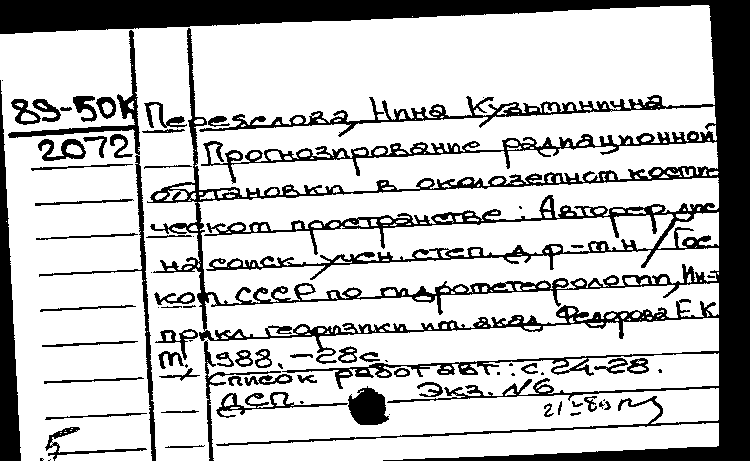 89-50К
2072
Переяслова, Нина Кузьминична
Прогнозирование радиационной
обстановки в околоземном косми-
ческом пространстве: Автореф. дис.
на соиск. учен. степ. д. ф.-м. н. / Гос.
ком. СССР по гидрометеорологии, Ин-т
прикл. геофизики им. акад. Федорова Е.К.
М., 1988. - 28 с.
Список работ авт.: с. 24-28.
ДСП. Экз. №6.
5